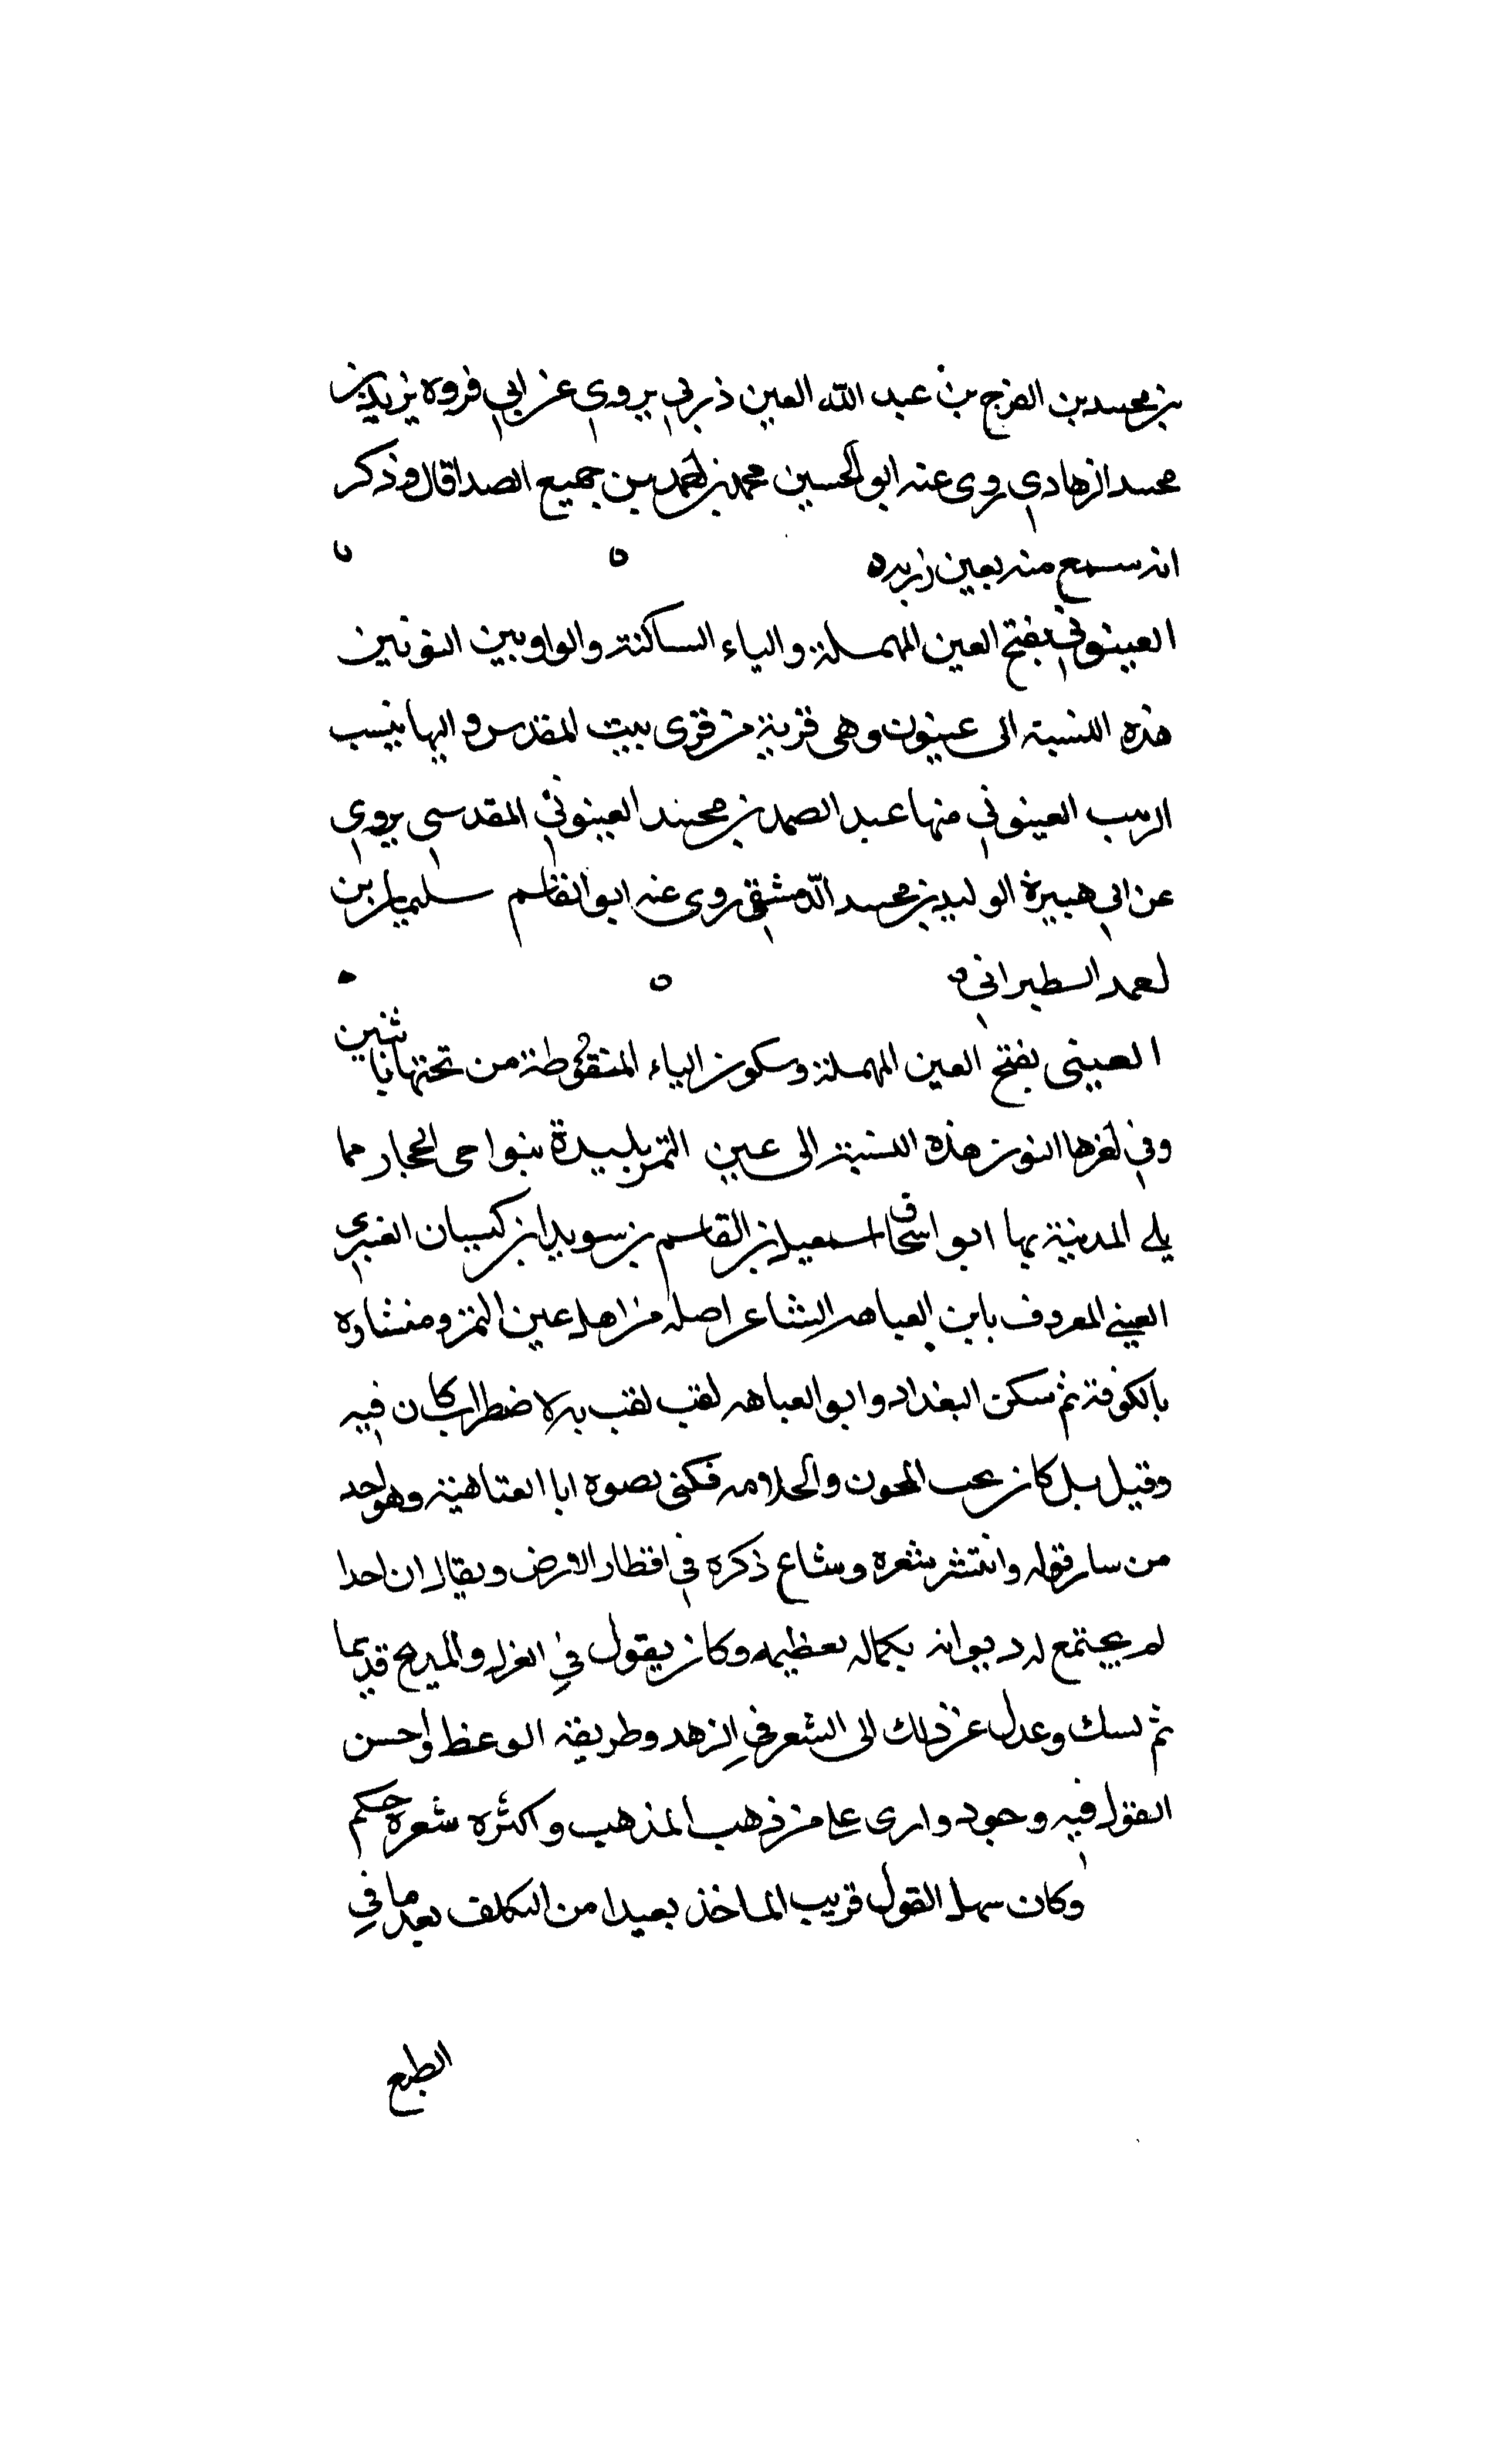 بن محمد بن الفرج بن عبد الله العين ذربي يروي عن ابي فروه يزيد بن
محمد الرهادي روى عنه ابو الحسين محمد بن احمد بن جميع الصدا قال وذكر
انه سمع منه بعين زربه ه
العينوني بفتح العين المهملة والياء الساكنة والواو بين النونين
هذه النسبة الى عينون وهى قرية من قرى بيت المقدس واليها ينسب
الزبيب العينوني منها عبد الصمد بن محمد العينوني المقدسي يروي
عن ابي هبيرة الوليد بن محمد الدمشقي روى عنه ابو القاسم سليمان بن
احمد السطبراني ه
العينى بفتح العين المهملة وسكون الياء المنقوطة من تحتها باثنين
وفي اخرها النون هذه النسبة الى عين التمر بليدة بنواحى الحجاز مما
يلى المدينة بها ابو اسحاق اسمعيل بن القاسم بن سويد ابن كيسان العنبري
العيني المعروف بابن العباهه الشاعر اصله من اهل عين التمر ومنشاره
بالكوفة ثم سكن البغداد وابو العباهه لقب لقب به لاضطراب كان فيه
وقيل بل كان يحب المجون والحلامه فكنى بصوه ابا العتاهية وهو احد
من سار قوله وانتشر شعره وشاع ذكره في اقطار الارض ويقال ان احدا
لم يجتمع له ديوانه بكماله لعظيمه وكان يقول في الغزل والمديح قديما
ثم نسك وعدل عن ذلك الى الشعر في الزهد وطريقة الوعظ واحسن
القول فيه وجود واربى على من ذهب المذهب واكثره شعره حكم
وكان سهل القول قريب الماخذ بعيدا من التكلف بعد ما في
الطبع